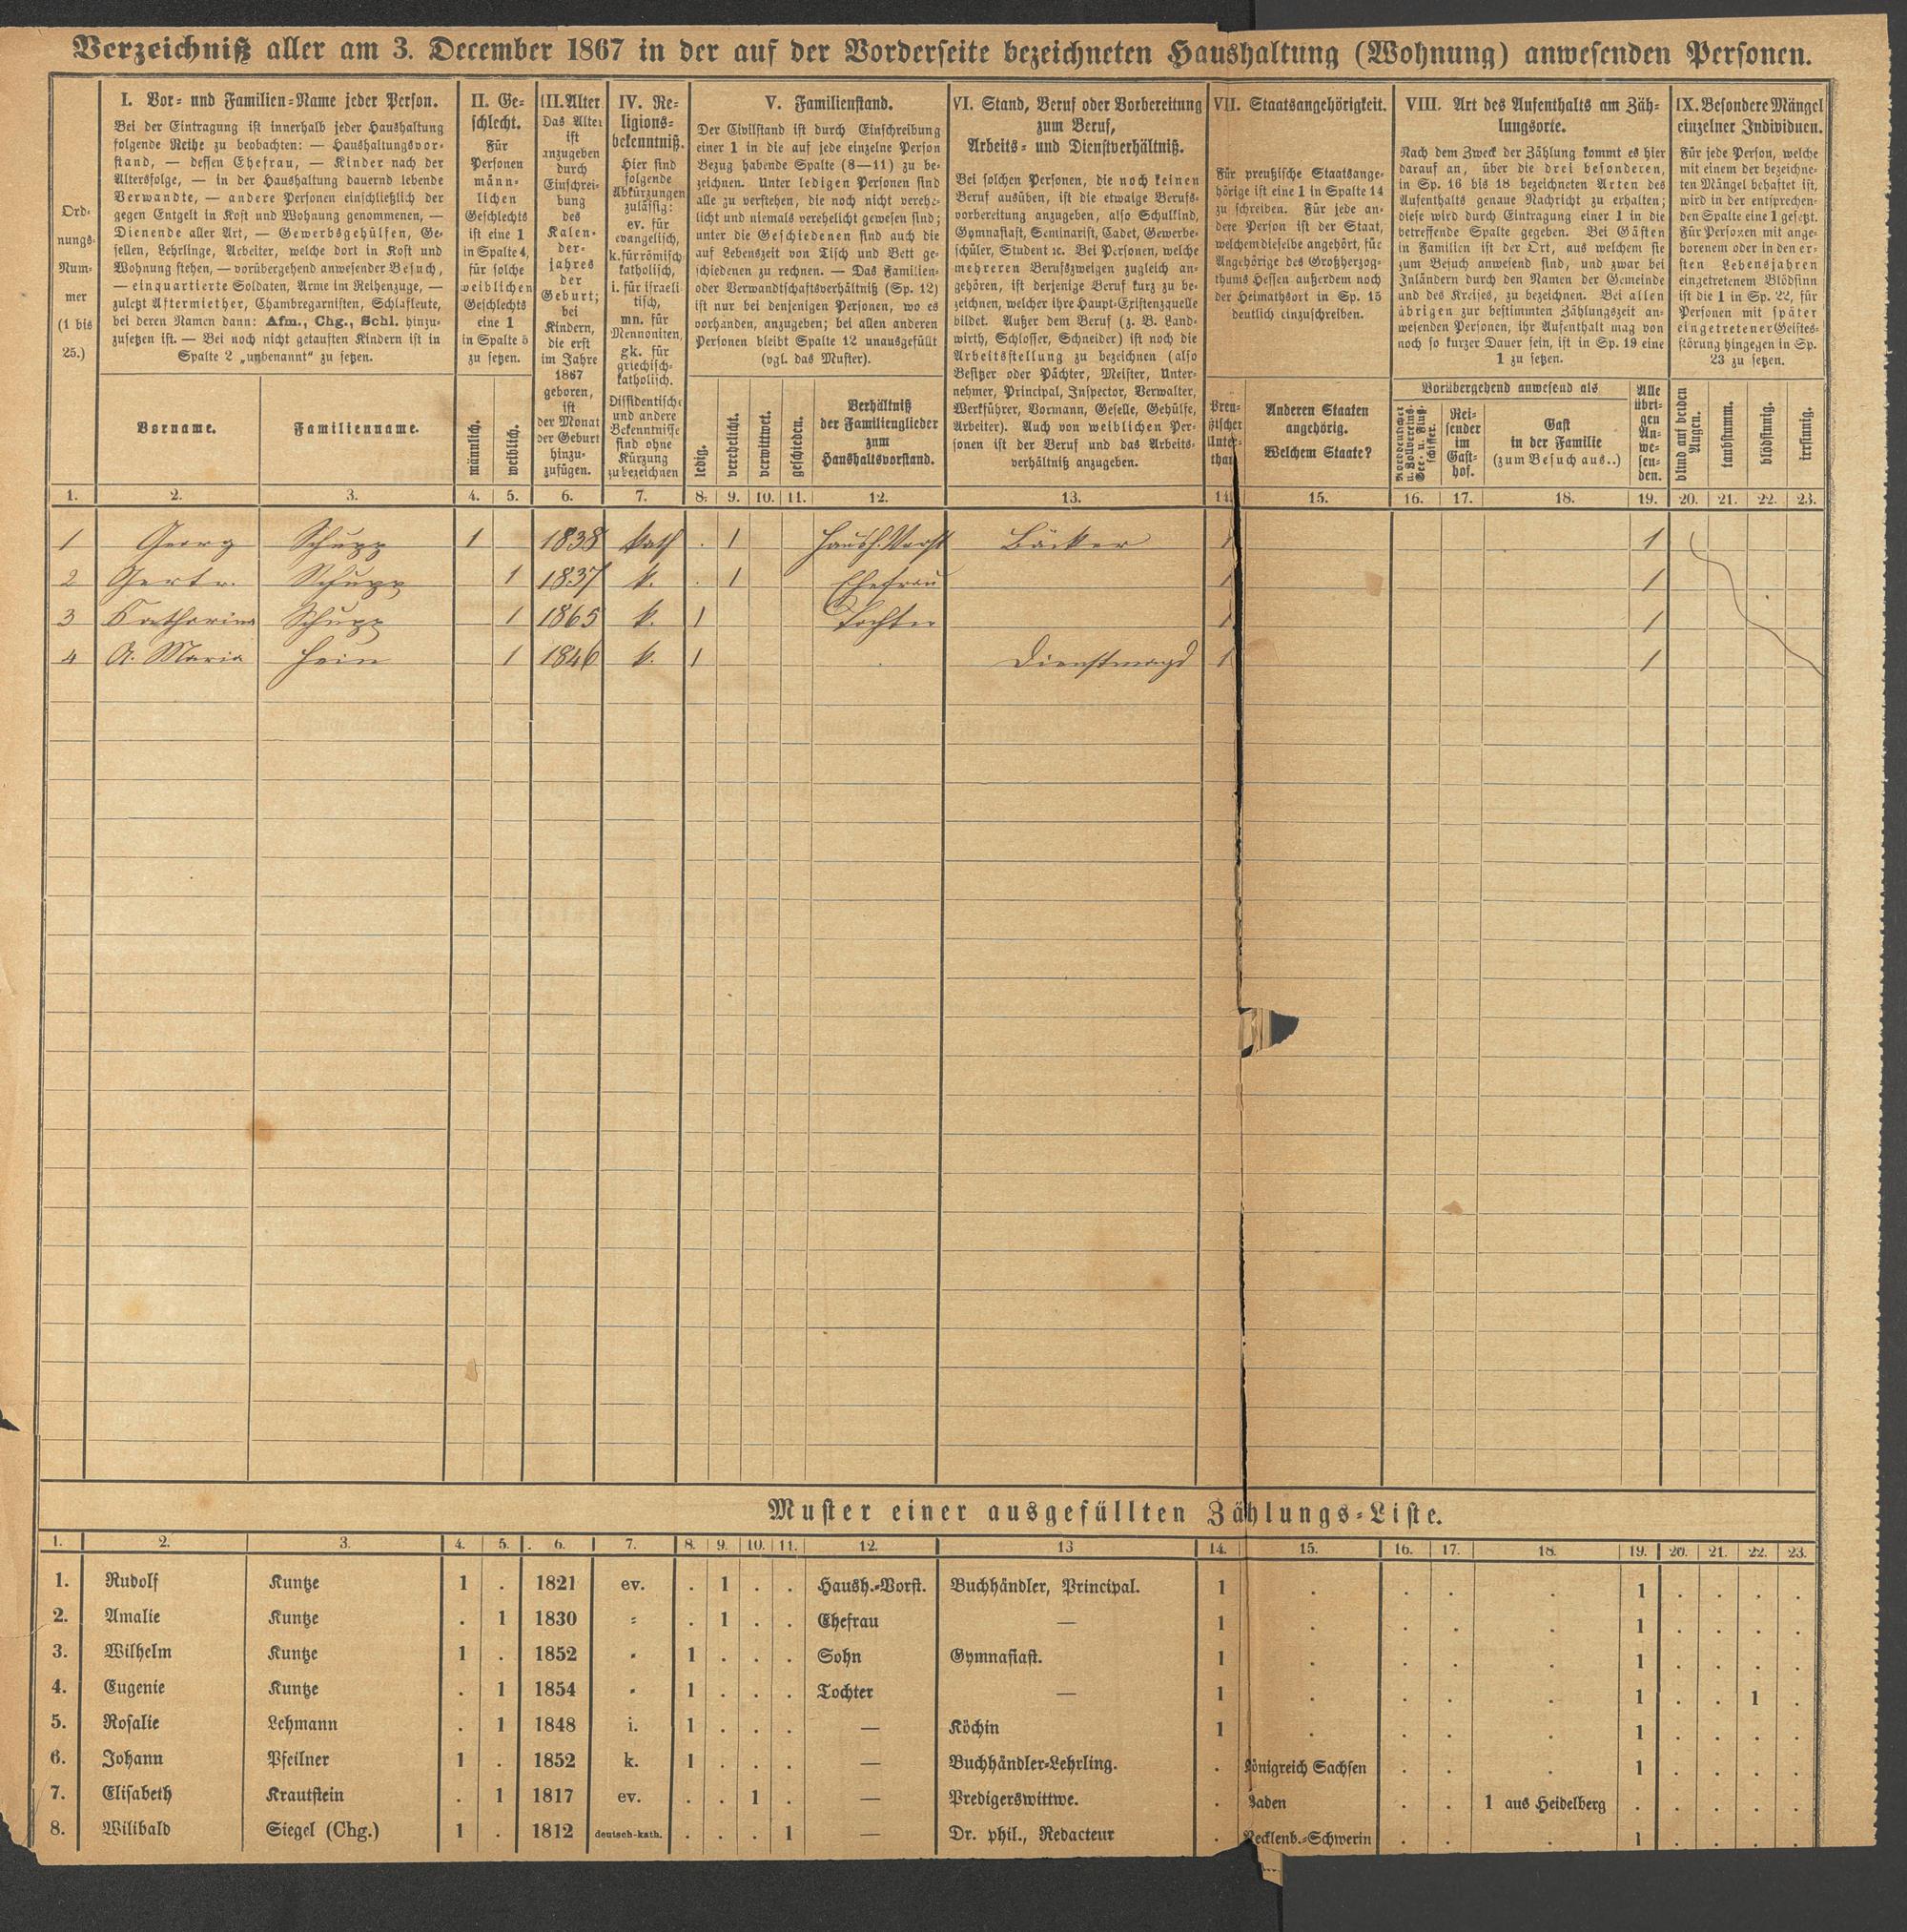 Verzeichniß aller am 3. December 1867 in der auf der Vorderseite bezeichneten Haushaltung (Wohnung) anwesenden Personen.
Ord-
nungs-
Num-
mer
(1 bis
25.)
I. Vor- und Familien-Name jeder Person.
Bei der Eintragung ist innerhalb jeder Haushaltung
folgende Reihe zu beobachten: — Haushaltungsvor-
stand, — dessen Ehefrau, — Kinder nach der
Altersfolge, — in der Haushaltung dauernd lebende
Verwandte, — andere Personen einschließlich der
gegen Entgelt in Kost und Wohnung genommenen, —
Dienende aller Art, — Gewerbsgehülfen, Ge-
sellen, Lehrlinge, Arbeiter, welche dort in Kost und
Wohnung stehen, — vorübergehend anwesender Besuch,
— einquartierte Soldaten, Arme im Reihenzuge, —
zuletzt Aftermiether, Chambregarnisten, Schlafleute,
bei deren Namen dann: Afm., Chg., Schl. hinzu-
zusetzen ist. — Bei noch nicht getauften Kindern ist in
Spalte 2 „unbenannt“ zu setzen.
Vorname.
Familienname.
II. Ge-
schlecht.
Für
Personen
männ-
lichen
Geschlechts
ist eine 1
in Spalte 4,
für solche
weiblichen
Geschlechts
eine 1
in Spalte 5
zu setzen.
männlich.
weiblich.
III. Alter
Das Alter
ist
anzugeben
durch
Einschrei-
bung
des
Kalen-
der-
jahres
der
Geburt;
bei
Kindern,
die erst
im Jahre
1867
geboren,
ist
der Monat
der Geburt
hinzu-
zufügen.
IV. Re-
ligions-
bekenntniß.
Hier sind
folgende
Abkürzungen
zulässig:
ev. für
evangelisch,
k. für römisch-
katholisch,
i. für israeli-
tisch,
mn. für
Mennoniten,
gk. für
griechisch-
katholisch.
Dissidentische
und andere
Bekenntnisse
sind ohne
Kürzung
zu bezeichnen
V. Familienstand.
Der Civilstand ist durch Einschreibung
einer 1 in die auf jede einzelne Person
Bezug habende Spalte (8—11) zu be-
zeichnen. Unter ledigen Personen sind
alle zu verstehen, die noch nicht verehe-
licht und niemals verehelicht gewesen sind;
unter die Geschiedenen sind auch die
auf Lebenszeit von Tisch und Bett ge-
schiedenen zu rechnen. — Das Familien-
oder Verwandtschaftsverhältniß (Sp. 12)
ist nur bei denjenigen Personen, wo es
vorhanden, anzugeben; bei allen anderen
Personen bleibt Spalte 12 unausgefüllt
(vgl. das Muster).
ledig.
verehelicht.
verwittwet.
geschieden.
Verhältniß
der Familienglieder
zum
Haushaltsvorstand.
VI. Stand, Beruf oder Vorbereitung
zum Beruf,
Arbeits- und Dienstverhältniß.
Bei solchen Personen, die noch keinen
Beruf ausüben, ist die etwaige Berufs-
vorbereitung anzugeben, also Schulkind,
Gymnasiast, Seminarist, Cadet, Gewerbe-
schüler, Student ꝛc. Bei Personen, welche
mehreren Berufszweigen zugleich an-
gehören, ist derjenige Beruf kurz zu be-
zeichnen, welcher ihre Haupt-Existenzquelle
bildet. Außer dem Beruf (z. B. Land-
wirth, Schlosser, Schneider) ist noch die
Arbeitsstellung zu bezeichnen (also
Besitzer oder Pächter, Meister, Unter-
nehmer, Principal, Inspector, Verwalter,
Werkführer, Vormann, Geselle, Gehülfe,
Arbeiter). Auch von weiblichen Per-
sonen ist der Beruf und das Arbeits-
verhältniß anzugeben.
VII. Staatsangehörigkeit.
Für preußische Staatsange-
hörige ist eine 1 in Spalte 14
zu schreiben. Für jede an-
dere Person ist der Staat,
welchem dieselbe angehört, für
Angehörige des Großherzog-
thums Hessen außerdem noch
der Heimathsort in Sp. 15
deutlich einzuschreiben.
Preu-
ßischer
Unter-
than
Anderen Staaten
angehörig.
Welchem Staate?
VIII. Art des Aufenthalts am Zäh-
lungsorte.
Nach dem Zweck der Zählung kommt es hier
darauf an, über die drei besonderen,
in Sp. 16 bis 18 bezeichneten Arten des
Aufenthalts genaue Nachricht zu erhalten;
diese wird durch Eintragung einer 1 in die
betreffende Spalte gegeben. Bei Gästen
in Familien ist der Ort, aus welchem sie
zum Besuch anwesend sind, und zwar bei
Inländern durch den Namen der Gemeinde
und des Kreises, zu bezeichnen. Bei allen
übrigen zur bestimmten Zählungszeit an-
wesenden Personen, ihr Aufenthalt mag von
noch so kurzer Dauer sein, ist in Sp. 19 eine
1 zu setzen.
Vorübergehend anwesend als
Norddeutscher
u. Vollvereins-
See- u. Fluß-
schiffer.
Rei-
sender
im
Gast-
hof.
Gast
in der Familie
(zum Besuch aus..)
Alle
übri-
gen
An-
we-
sen-
den.
IX. Besondere Mängel
einzelner Individuen.
Für jede Person, welche
mit einem der bezeichne-
ten Mängel behaftet ist,
wird in der entsprechen-
den Spalte eine 1 gesetzt.
Für Personen mit ange-
borenem oder in den er-
sten Lebensjahren
eingetretenem Blödsinn
ist die 1 in Sp. 22, für
Personen mit später
eingetretener Geistes-
störung hingegen in Sp.
23 zu setzen.
blind auf beiden
Augen.
taubstumm.
blödsinnig.
irrsinnig.
1. 2. 3. 4. 5. 6. 7. 8. 9. 10. 11. 12. 13. 14. 15. 16. 17. 18. 19. 20. 21. 22. 23.
1 Georg Schupp 1 1838 kath . 1 Haush. Vorst Bäcker 1 1
2 Gertr. Schupp 1 1837 k. . 1 Ehefrau 1 1
3 Catharina Schupp 1 1865 k. 1 Tochter 1 1
4 A. Maria Hein 1 1846 k. 1 Dienstmagd 1 1
Muster einer ausgefüllten Zählungs-Liste.
1. 2. 3. 4. 5. 6. 7. 8. 9. 10. 11. 12. 13 14. 15. 16. 17. 18. 19. 20. 21. 22. 23.
1. Rudolf Kuntze 1 . 1821 ev. . 1 . . Haush.-Vorst. Buchhändler, Principal. 1 . . . . 1 . . . .
2. Amalie Kuntze . 1 1830 = . 1 . . Ehefrau — 1 . . . . 1 . . . .
3. Wilhelm Kuntze 1 . 1852 " 1 . . . Sohn Gymnasiast. 1 . . . . 1 . . . .
4. Eugenie Kuntze . 1 1854 " 1 . . . Tochter — 1 . . . . 1 . . 1 .
5. Rosalie Lehmann . 1 1848 i. 1 . . . — Köchin 1 . . . . 1 . . . .
6. Johann Pfeilner 1 . 1852 k. 1 . . . — Buchhändler-Lehrling. . Königreich Sachsen . . . 1 . . . .
7. Elisabeth Krautstein . 1 1817 ev. . . 1 . — Predigerswittwe. . Baden . . 1 aus Heidelberg . . . . .
8. Wilibald Siegel (Chg.) 1 . 1812 deutsch-kath. . . . 1 — Dr. phil., Redacteur . Mecklenb.-Schwerin . . . 1 . . . .